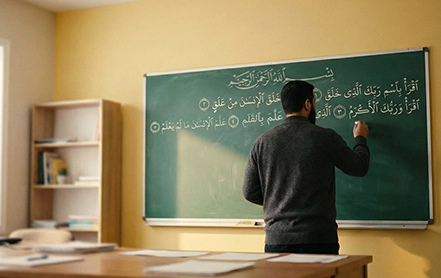 بِسْمِ اللَّهِ الرَّحْمَٰنِ الرَّحِيمِ
ٱقْرَأْ بِٱسْمِ رَبِّكَ ٱلَّذِى خَلَقَ خَلَقَ ٱلْإِنسَٰنَ مِنْ عَلَقٍ ٢
ٱقْرَأْ وَرَبُّكَ ٱلْأَكْرَمُ ٣ ٱلَّذِى عَلَّمَ بِٱلْقَلَمِ ٤ عَلَّمَ ٱلْإِنسَٰنَ مَا لَمْ يَعْلَمْ ٥